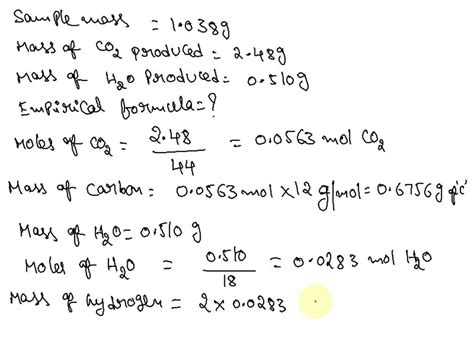 Sample mass = 1.0389
Mass of CO2 produced = 2.48g
Mass of H2O Produced = 0.510g
Empirical formula = ?
Moles of CO2 = 2.48/44 = 0.0563 mol CO2
Mass of Carbon = 0.0563 mol × 12 g/mol = 0.6756g of 'C'
Mass of H2O = 0.510 g
Moles of H2O = 0.510/18 = 0.0283 mol H2O
Mass of hydrogen = 2 × 0.0283